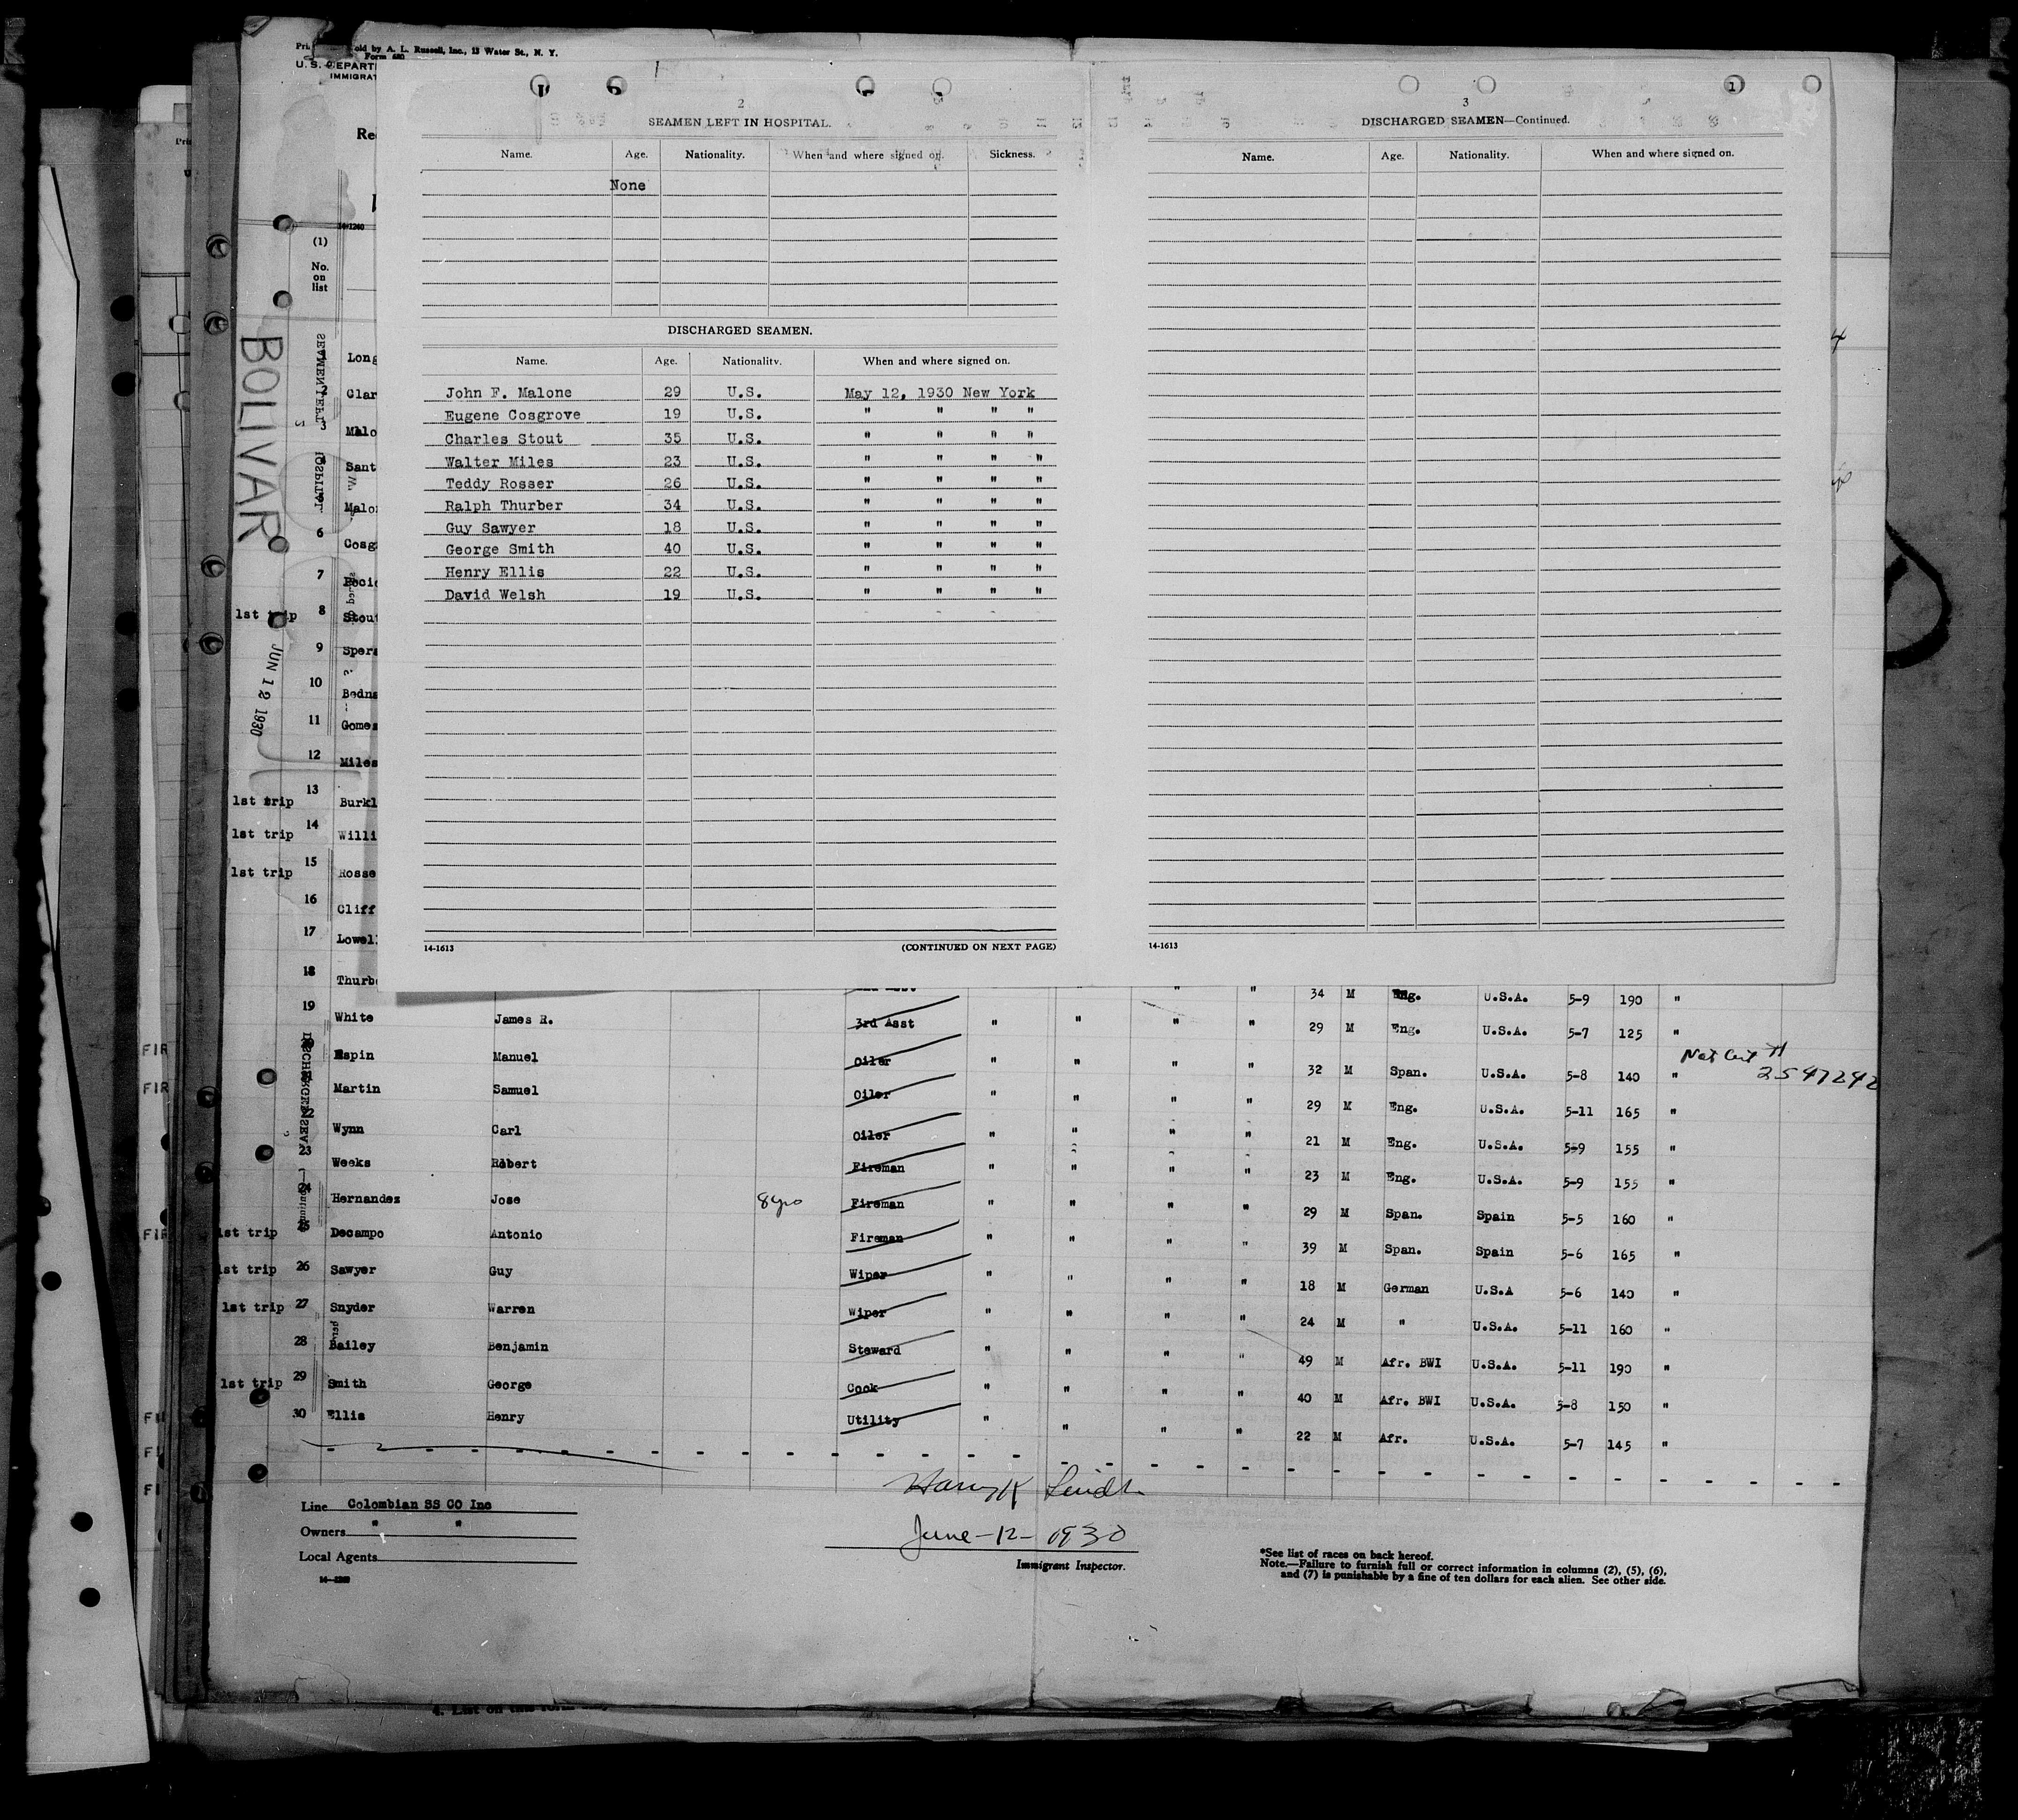 old by A. L. Russell, Inc., 13 Water St., N. Y.
Form 680
U. S. DEPART
IMMIGRAT
Re
14-1240
(1)
No.
on
list
BOLIVAR
JUN 12 1930
2
SEAMEN LEFT IN HOSPITAL.
Name. Age. Nationality. When and where signed on. Sickness.
None
DISCHARGED SEAMEN.
Name. Age. Nationality. When and where signed on.
John F. Malone 29 U.S. May 12, 1930 New York
Eugene Cosgrove 19 U.S. " " " "
Charles Stout 35 U.S. " " " "
Walter Miles 23 U.S. " " " "
Teddy Rosser 26 U.S. " " " "
Ralph Thurber 34 U.S. " " " "
Guy Sawyer 18 U.S. " " " "
George Smith 40 U.S. " " " "
Henry Ellis 22 U.S. " " " "
David Welsh 19 U.S. " " " "
14-1613 (CONTINUED ON NEXT PAGE)
3
1
DISCHARGED SEAMEN—Continued.
Name. Age. Nationality. When and where signed on.
14-1613
Long
2 Clar
3 Malo
Sant
Malo
6 Cosg
7
1st trip 8 Stou
9 Spera
10 Bedna
11 Gomes
12 Miles
1st trip 13 Burkl
1st trip 14 Willi
1st trip 15 Rosse
16 Cliff
17 Lowel
18 Thurbe " " " 34 M Eng. U.S.A. 5-9 190 "
19 White James R. 3rd Asst " " " " 29 M Eng. U.S.A. 5-7 125 "
Espin Manuel Oiler " " " " 32 M Span. U.S.A. 5-8 140 " Nat Cert # 2547242
Martin Samuel Oiler " " " " 29 M Eng. U.S.A. 5-11 165 "
22 Wynn Carl Oiler " " " " 21 M Eng. U.S.A. 5-9 155 "
23 Weeks Robert Fireman " " " " 23 M Eng. U.S.A. 5-9 155 "
24 Hernandez Jose 8 yrs Fireman " " " " 29 M Span. Spain 5-5 160 "
1st trip 25 Decampo Antonio Fireman " " " " 39 M Span. Spain 5-6 165 "
1st trip 26 Sawyer Guy Wiper " " " " 18 M German U.S.A 5-6 140 "
1st trip 27 Snyder Warren Wiper " " " " 24 M " U.S.A. 5-11 160 "
28 Bailey Benjamin Steward " " " " 49 M Afr. BWI U.S.A. 5-11 190 "
1st trip 29 Smith George Cook " " " " 40 M Afr. BWI U.S.A. 5-8 150 "
30 Ellis Henry Utility " " " " 22 M Afr. U.S.A. 5-7 145 "
Line Colombian SS CO Inc
Owners " "
Local Agents
Harry K
June-12-1930
Immigrant Inspector.
*See list of races on back hereof.
Note.—Failure to furnish full or correct information in columns (2), (5), (6),
and (7) is punishable by a fine of ten dollars for each alien. See other side.